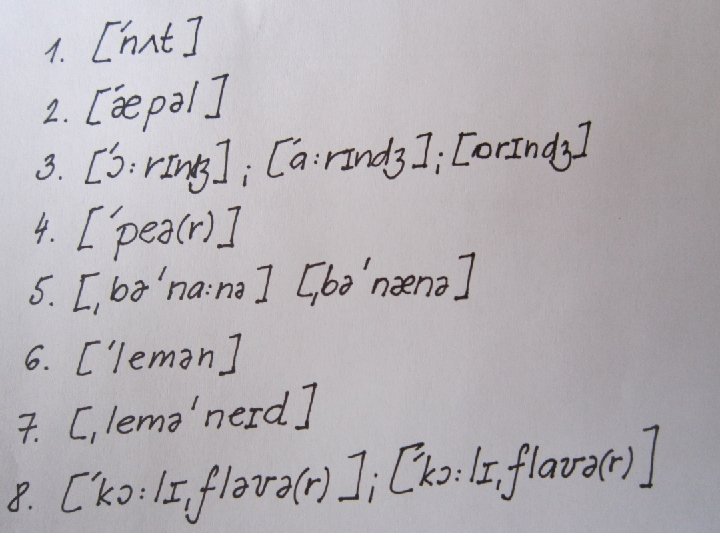 1. [ˈnʌt]
2. [ˈæpəl]
3. [ˈɔ:rɪnʤ]; [ˈɑ:rɪndʒ]; [ɒrɪndʒ]
4. [ˈpeə(r)]
5. [ˌbəˈnɑ:nə] [ˌbəˈnænə]
6. [ˈlemən]
7. [ˌleməˈneɪd]
8. [ˈkɔ:lɪˌfləʊə(r)]; [ˈkɔ:lɪˌflaʊə(r)]